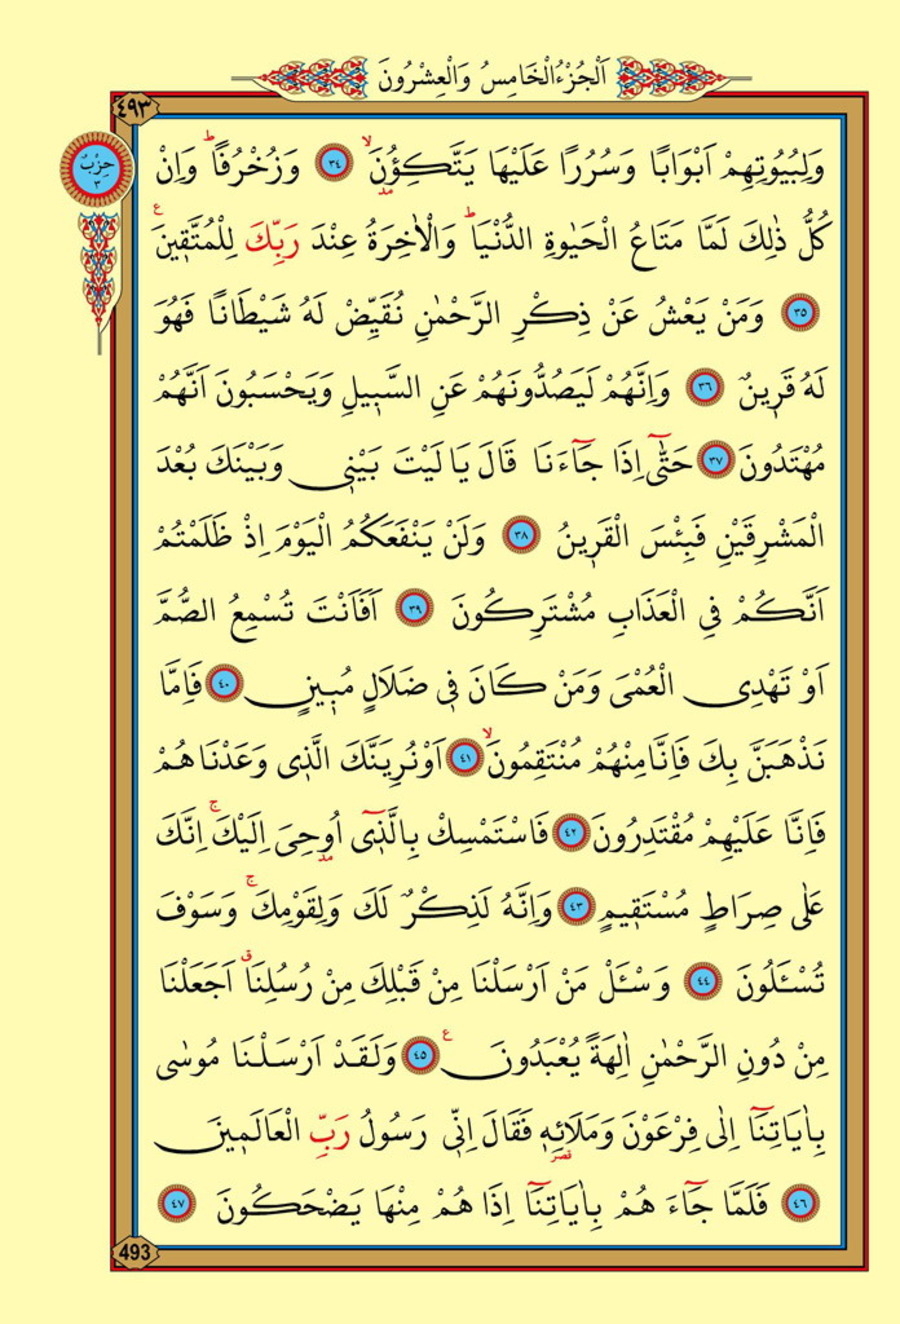 اَلْجُزْءُالْخَامِسُ وَالْعِشْرُونَ
٤٩٣
حِزْبٌ
٣
وَلِبُيُوتِهِمْ اَبْوَابًا وَسُرُرًا عَلَيْهَا يَتَّكِؤُنَۙ ٣٤ وَزُخْرُفًاۜ وَاِنْ
كُلُّ ذٰلِكَ لَمَّا مَتَاعُ الْحَيٰوةِ الدُّنْيَاۜ وَالْاٰخِرَةُ عِنْدَ رَبِّكَ لِلْمُتَّقٖينَ ع
٣٥ وَمَنْ يَعْشُ عَنْ ذِكْرِ الرَّحْمٰنِ نُقَيِّضْ لَهُ شَيْطَانًا فَهُوَ
لَهُ قَرٖينٌ ٣٦ وَاِنَّهُمْ لَيَصُدُّونَهُمْ عَنِ السَّبٖيلِ وَيَحْسَبُونَ اَنَّهُمْ
مُهْتَدُونَ ٣٧ حَتّٰٓى اِذَا جَٓاءَنَا قَالَ يَا لَيْتَ بَيْنٖى وَبَيْنَكَ بُعْدَ
الْمَشْرِقَيْنِ فَبِئْسَ الْقَرٖينُ ٣٨ وَلَنْ يَنْفَعَكُمُ الْيَوْمَ اِذْ ظَلَمْتُمْ
اَنَّكُمْ فِى الْعَذَابِ مُشْتَرِكُونَ ٣٩ اَفَاَنْتَ تُسْمِعُ الصُّمَّ
اَوْ تَهْدِى الْعُمْىَ وَمَنْ كَانَ فٖى ضَلَالٍ مُبٖينٍ ٤٠ فَاِمَّا
نَذْهَبَنَّ بِكَ فَاِنَّا مِنْهُمْ مُنْتَقِمُونَۙ ٤١ اَوْ نُرِيَنَّكَ الَّذٖى وَعَدْنَا هُمْ
فَاِنَّا عَلَيْهِمْ مُقْتَدِرُونَ ٤٢ فَاسْتَمْسِكْ بِالَّذٖٓى اُوحِىَ اِلَيْكَۚ اِنَّكَ
عَلٰى صِرَاطٍ مُسْتَقٖيمٍ ٤٣ وَاِنَّهُ لَذِكْرٌ لَكَ وَلِقَوْمِكَۚ وَسَوْفَ
تُسْئَلُونَ ٤٤ وَسْئَلْ مَنْ اَرْسَلْنَا مِنْ قَبْلِكَ مِنْ رُسُلِنَاق اَجَعَلْنَا
مِنْ دُونِ الرَّحْمٰنِ اٰلِهَةً يُعْبَدُونَ ع ٤٥ وَلَقَدْ اَرْسَلْنَا مُوسٰى
بِاٰيَاتِنَٓا اِلٰى فِرْعَوْنَ وَمَلَائِهٖ فَقَالَ اِنّٖى رَسُولُ رَبِّ الْعَالَمٖينَ
٤٦ فَلَمَّا جَٓاءَ هُمْ بِاٰيَاتِنَٓا اِذَا هُمْ مِنْهَا يَضْحَكُونَ ٤٧
493